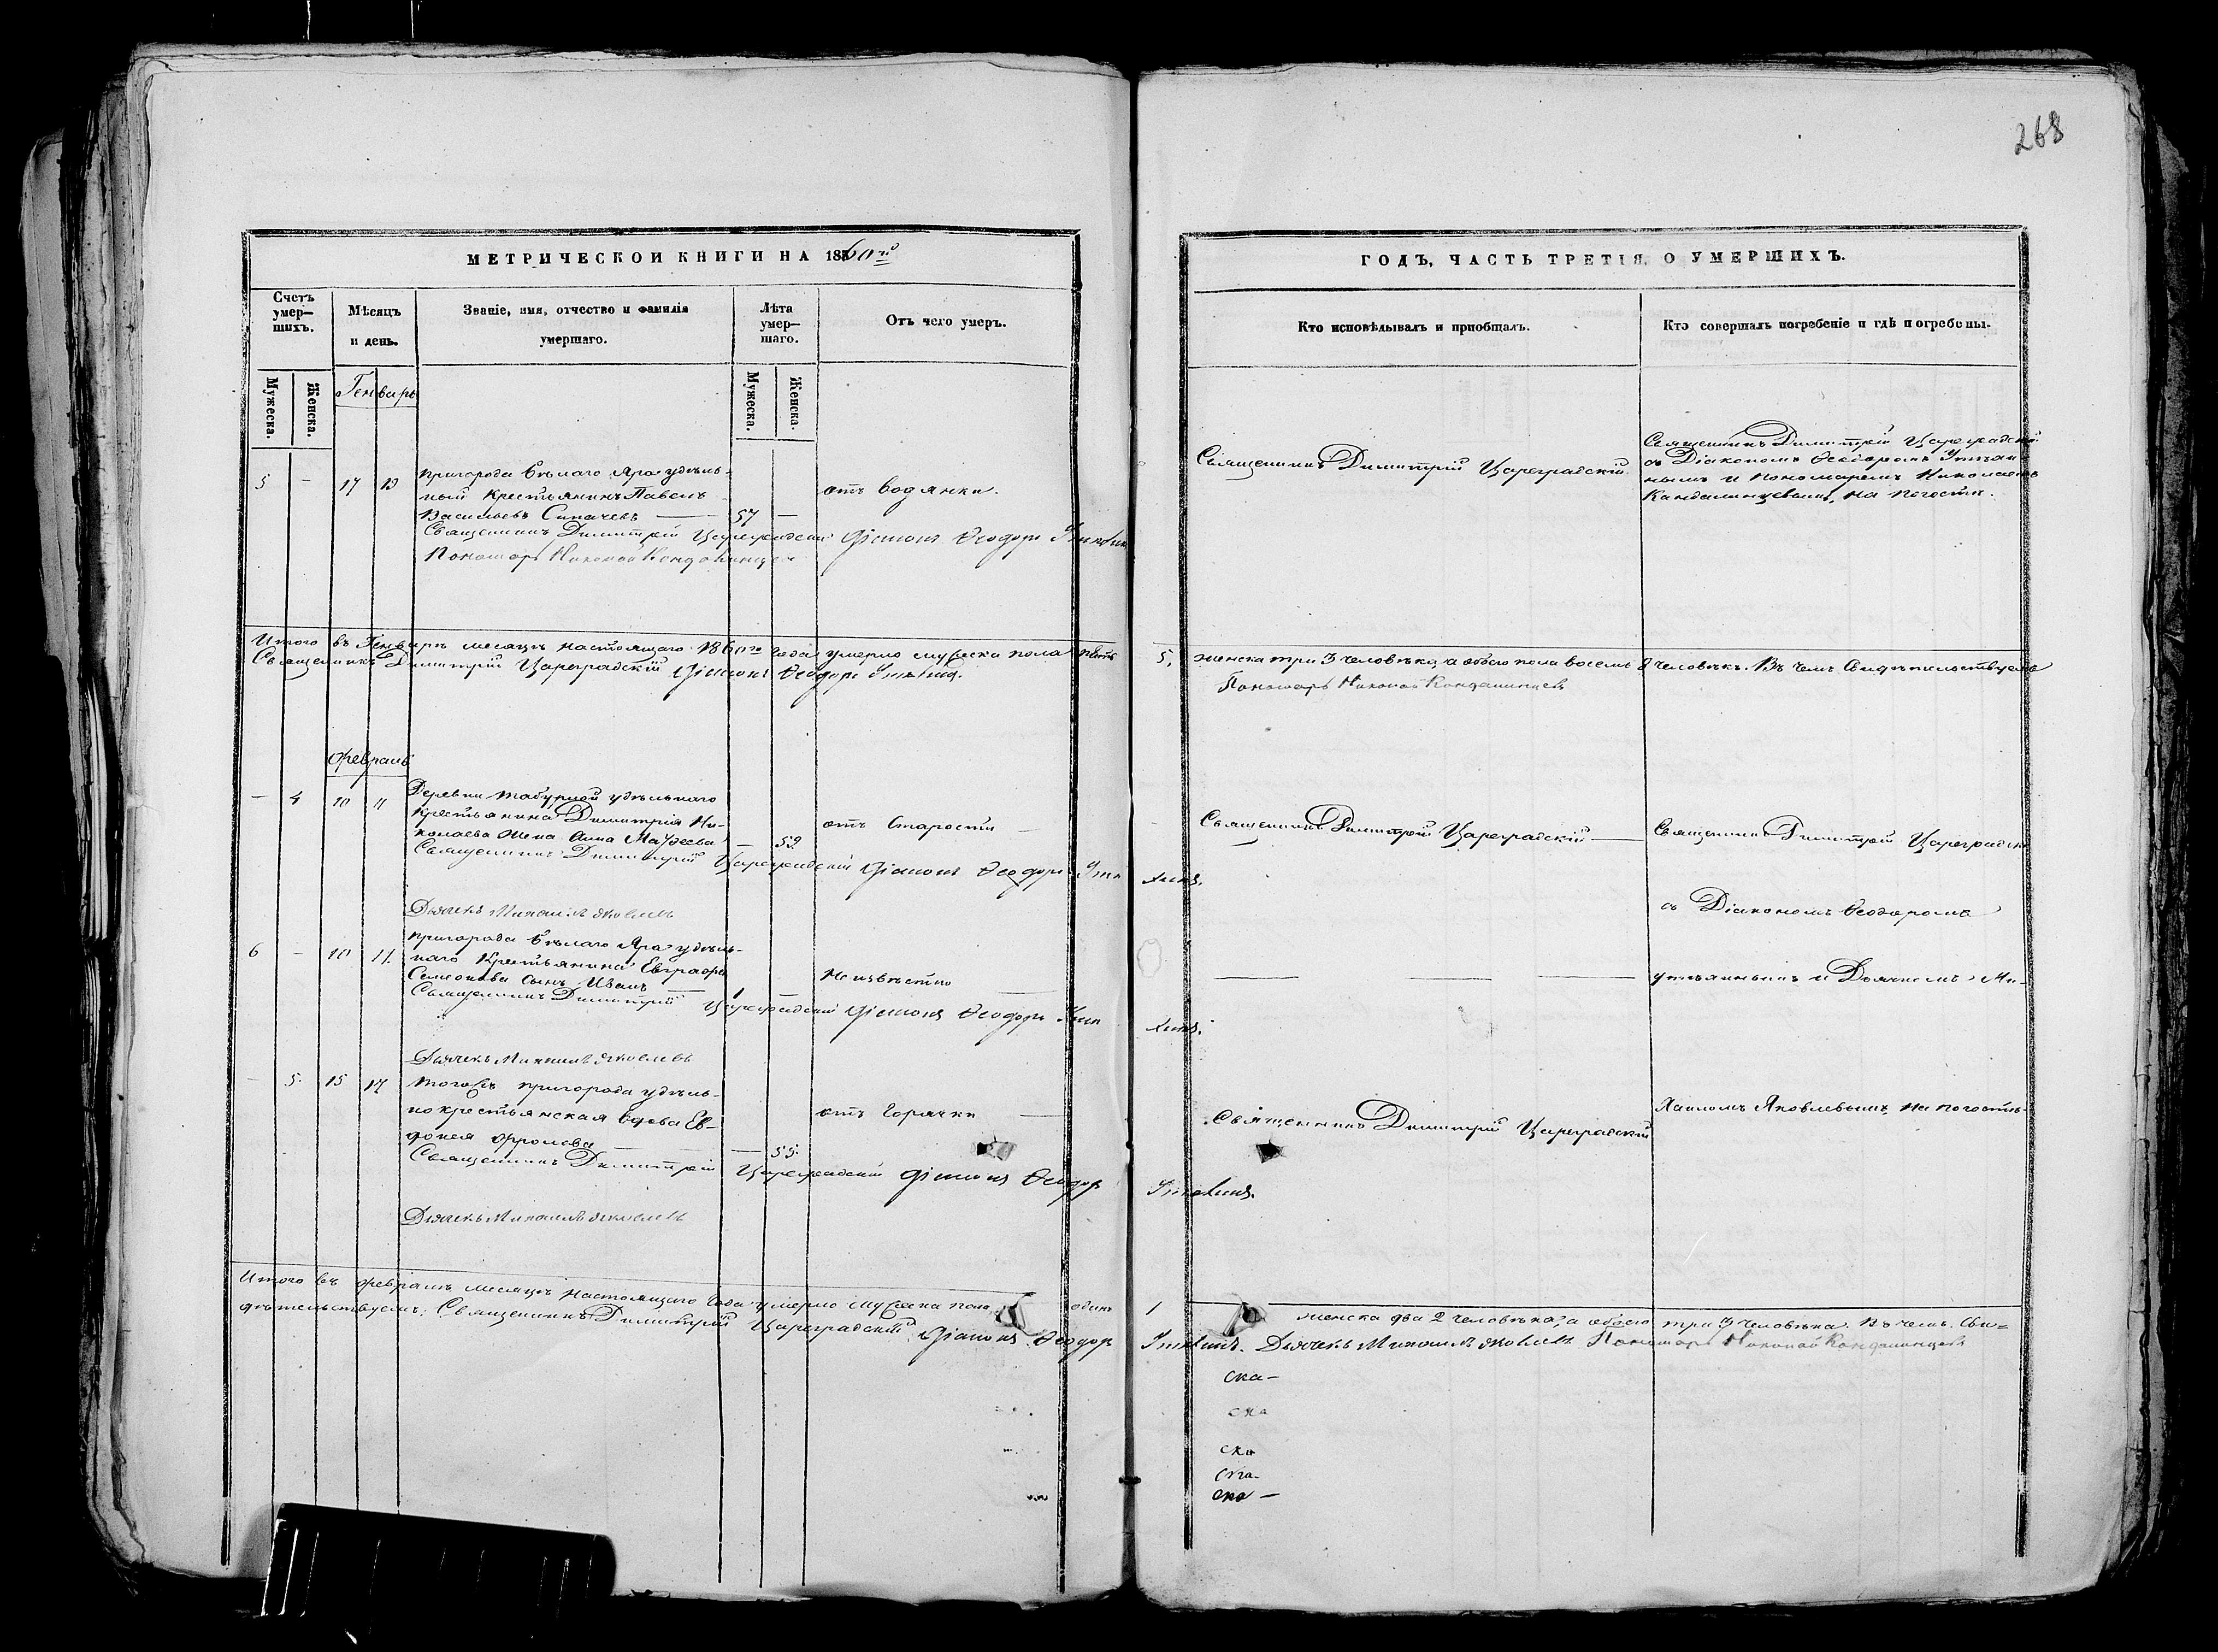 268
МЕТРИЧЕСКОЙ КНИГИ НА 1860й
Счетъ умер—шихъ.
Мѣсяцъ и день.
Званіе, имя, отчество и фамилія умершаго.
Лѣта умер—шаго.
Отъ чего умеръ.
Мужеска.
Женска.
Генварь
Мужеска.
Женска.
5 — 17 19 Пригорода Бѣлаго Яра удѣль-
ный крестьянинъ Павелъ
Васильевъ — 57 —
отъ водянки.
Священникъ Димитрій Цареградскій Діаконъ Ѳеодоръ
Пономарь Николай Кандалинцевъ
Итого въ Генварѣ месяцѣ настоящаго 1860го года умерло мужеска пола пять
Священникъ Димитрій Цареградскій Діаконъ Ѳеодоръ
Февраль
— 4 10 11 Деревни удѣльнаго
крестьянина Димитрія Ни-
колаева жена Анна — 59.
отъ старости —
Священникъ Димитрій Цареградскій Діаконъ Ѳеодоръ
Дьячекъ Михаилъ Яковлевъ
6 — 10 11. Пригорода Бѣлаго Яра удѣль-
наго крестьянина Евграфа
Семенова сынъ Иванъ — 1 —
Неизвѣстно —
Священникъ Димитрій Цареградскій Діаконъ Ѳеодоръ
Дьячекъ Михаилъ Яковлевъ
— 5. 15 17 Тогожъ пригорода удѣль-
но крестьянская вдова Ев-
докея Фролова — 55.
отъ горячки —
Священникъ Димитрій Цареградскій Діаконъ Ѳеодоръ
Дьячекъ Михаилъ Яковлевъ
Итого въ Февралѣ месяцѣ настоящаго года умерло мужеска пола одинъ
дѣтельствуемъ: Священникъ Димитрій Цареградскій Діаконъ Ѳеодоръ
ГОДЪ, ЧАСТЬ ТРЕТІЯ, О УМЕРШИХЪ.
Кто исповѣдывалъ и пріобщалъ.
Кто совершалъ погребеніе и гдѣ погребены.
Священникъ Димитрій Цареградскій
Священникъ Димитрій Цареградскій
съ Діакономъ Ѳеодоромъ
нымъ и пономаремъ Николаемъ
Кандалинцевымъ, на погостѣ.
5, женска три 3 человѣка, а обоего пола восемь 8 человѣкъ. Въ чемъ свидѣтельствуемъ
Пономарь Николай Кандалинцевъ
Священникъ Димитрій Цареградскій —
Священникъ Димитрій Цареградскій
съ Діакономъ Ѳеодоромъ
— — —
и Дьячкомъ Ми-
Священникъ Димитрій Цареградскій
хаиломъ Яковлевымъ, на погостѣ.
1 женска два 2 человѣка, а обоего три 3 человѣка. Въ чемъ сви=
Дьячекъ Михаилъ Яковлевъ Пономарь Николай Кандалинцевъ
ска—
ска
ска
ска-
ска —